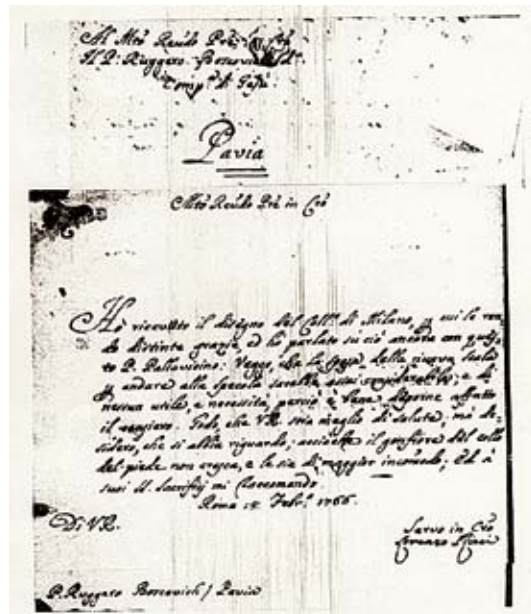 Al Mto Reudo Pre in Cro
Il P. Ruggero Boscovich d.
Comp.a di Gesù
Pavia
Mto Reudo Pre in Cro
Ho ricevuto il disegno del Coll.o di Milano, p cui le ren-
do distinte grazie, ed hò parlato su ciò ancora con questo
P. Pallavicino: Veggo, che la spesa della nuova Scala
p andare alla specola sarebbe assai considerabile, e di
nessun utile, e necessità, perciò è bene deporne affatto
il pensiero. Godo, che VR. stia meglio di salute, ma de-
sidero, che si abbia riguardo; acciocchè il gonfiore del collo
del piede non cresca, e le sia di maggior incomodo; Ed à
suoi SS. Sacrifizj mi Raccomando.
Roma 15 Febr.o 1766.
Di VR.
Servo in Cro
Lorenzo Ricci
P. Ruggero Boscovich / Pavia